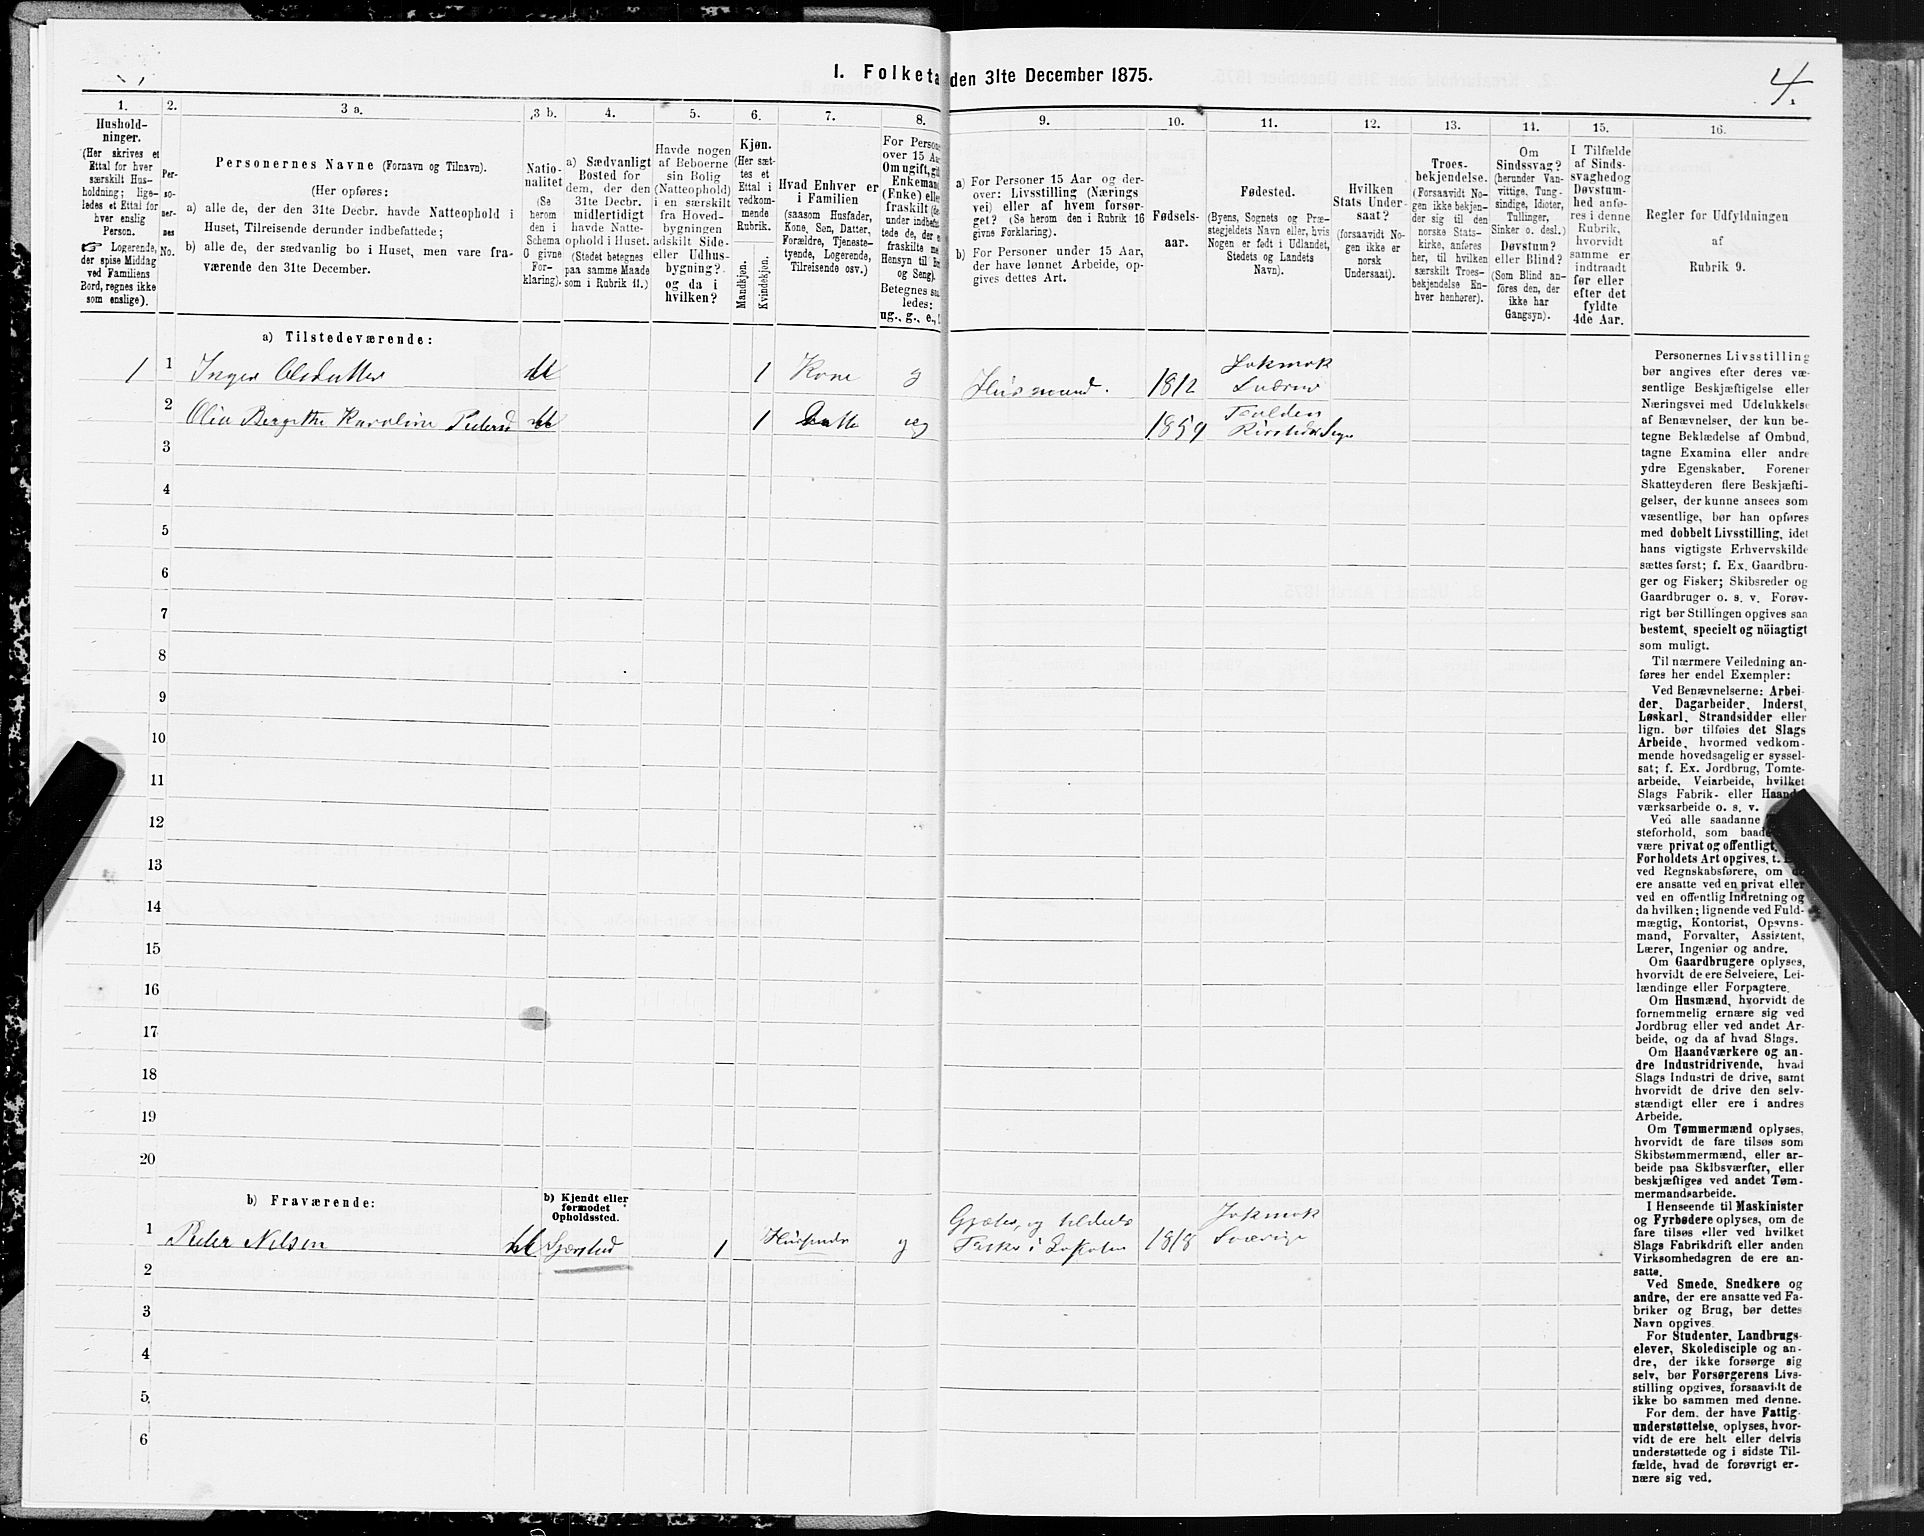 4.
I. Folketa den 31te December 1875.
1. 2. 3 a. 3 b. 4. 5. 6. 7. 8. 9. 10. 11. 12. 13. 14. 15. 16.
Hushold-
ninger.
(Her skrives et
Ettal for hver
særskilt Hus-
holdning; lige-
ledes et Ettal for
hver enslig
Person.
☞ Logerende,
der spise Middag
ved Familiens
Bord, regnes ikke
som enslige).
Per-
so-
ner-
nes
No.
Personernes Navne (Fornavn og Tilnavn).
(Her opføres:
a) alle de, der den 31te Decbr. havde Natteophold i
Huset, Tilreisende derunder indbefattede;
b) alle de, der sædvanlig bo i Huset, men vare fra-
værende den 31te December.
Natio-
nalitet
(Se
herom
den i
Schema
O givne
For-
klaring).
a) Sædvanligt
Bosted for
dem, der den
31te Decbr.
midlertidigt
havde Natte-
ophold i Huset.
(Stedet betegnes
paa samme Maade
som i Rubrik 11.)
Havde nogen
af Beboerne
sin Bolig
(Natteophold)
i en særskilt
fra Hoved-
bygningen
adskilt Side-
eller Udhus-
bygning?
og da i
hvilken?
Kjøn.
(Her sæt-
tes et
Ettal i
vedkom-
mende
Rubrik.
Mandkjøn.
Kvindekjøn.
Hvad Enhver er
i Familien
(saasom Husfader,
Kone, Søn, Datter,
Forældre, Tjeneste-
tyende, Logerende,
Tilreisende osv.)
For Persone
over 15 Aa
Om ugift, gif
Enkemand
(Enke) elle
fraskilt
under indbefat-
tede de, der e
fraskilte me
Hensyn til Bo
og Seng).
Betegnes saa
ledes:
ug., g., e.,
a) For Personer 15 Aar og der-
over: Livsstilling (Nærings
vei) eller af hvem forsør-
get? (Se herom den i Rubrik 16
givne Forklaring).
b) For Personer under 15 Aar,
der have lønnet Arbeide, op-
gives dettes Art.
Fødsels-
aar.
Fødested.
(Byens, Sognets og Præ-
stegjeldets Navn eller, hvis
Nogen er født i Udlandet,
Stedets og Landets
Navn).
Hvilken
Stats Under-
saat?
(forsaavidt No-
gen ikke er
norsk
Undersaat).
Troes-
bekjendelse.
(Forsaavidt No-
gen ikke bekjen-
der sig til den
norske Stats-
kirke, anføres
her, til hvilken
særskilt Troes-
bekjendelse En-
hver henhører).
Om
Sindssvag?
(herunder Van-
vittige, Tung-
sindige, Idioter,
Tullinger,
Sinker o. desl.)
Døvstum?
eller Blind?
(Som Blind an-
føres den, der
ikke har
Gangsyn).
I Tilfælde
af Sinds-
svaghed og
Døvstum-
hed anfø-
res i denne
Rubrik,
hvorvidt
samme er
indtraadt
før eller
efter det
fyldte
4de Aar.
Regler for Udfyldningen
af
Rubrik 9.
a) Tilstedeværende:
1 1 Inger Olsdatter 1 Kone g Husmand. 1812 Jokmok
2 Olia Karoline 1 Datte ug 1859
3
4
5
6
7
8
9
10
11
12
13
14
15
16
17
18
19
20
b) Fraværende:
b) Kjendt eller
formodet
Opholdssted.
1 Peder Nilsen 1 g 1818 Jokmok Sværige
2
3
4
5
6
Personernes Livsstilling
bør angives efter deres væ-
sentlige Beskjæftigelse eller
Næringsvei med Udelukkelse
af Benævnelser, der kun be-
tegne Beklædelse af Ombud,
tagne Examina eller andre
ydre Egenskaber. Forener
Skatteyderen flere Beskjæfti-
gelser, der kunne ansees som
væsentlige, bør han opføres
med dobbelt Livsstilling, idet
hans vigtigste Erhvervskilde
sættes først; f. Ex. Gaardbru-
ger og Fisker; Skibsreder og
Gaardbruger o. s. v. Forøv-
rigt bør Stillingen opgives saa
bestemt, specielt og nöiagtigt
som muligt.
Til nærmere Veiledning an-
føres her endel Exempler:
Ved Benævnelserne: Arbei-
der, Dagarbeider, Inderst,
Løskarl, Strandsidder eller
lign. bør tilføies det Slags
Arbeide, hvormed vedkom-
mende hovedsagelig er syssel-
sat; f. Ex. Jordbrug, Tomte-
arbeide, Veiarbeide, hvilket
Slags Fabrik- eller Haand-
værksarbeide o. s. v.
Ved alle saadanne
steforhold, som baade
være privat og offentligt,
Forholdets Art opgives, t.
ved Regnskabsførere, om de
ere ansatte ved en privat eller
ved en offentlig Indretning og
da hvilken; lignende ved Fuld-
mægtig, Kontorist, Opsyns-
mand, Forvalter, Assistent,
Lærer, Ingeniør og andre.
Om Gaardbrugere oplyses,
hvorvidt de ere Selveiere, Lei-
lændinge eller Forpagtere.
Om Husmænd, hvorvidt de
fornemmelig ernære sig ved
Jordbrug eller ved andet Ar-
beide, og da af hvad Slags.
Om Haandværkere og an-
dre Industridrivende, hvad
Slags Industri de drive, samt
hvorvidt de drive den selv-
stændigt eller ere i andres
Arbeide.
Om Tømmermænd oplyses,
hvorvidt de fare tilsøs som
Skibstømmermænd, eller ar-
beide paa Skibsværfter, eller
beskjæftiges ved andet Tøm-
mermandsarbeide.
I Henseende til Maskinister
og Fyrbødere oplyses, om de
fare tilsøs eller ved hvilket
Slags Fabrikdrift eller anden
Virksomhedsgren de ere an-
satte.
Ved Smede, Snedkere og
andre, der ere ansatte ved Fa-
briker og Brug, bør dettes
Navn opgives.
For Studenter, Landbrugs-
elever, Skoledisciple og an-
dre, der ikke forsørge sig
selv, bør Forsørgerens Livs-
stilling opgives, forsaavidt de
ikke bo sammen med denne.
For dem, der have Fattig-
understøttelse, oplyses, hvor-
vidt de ere helt eller delvis
understøttede og i sidste Til-
fælde, hvad de forøvrigt er-
nære sig ved.